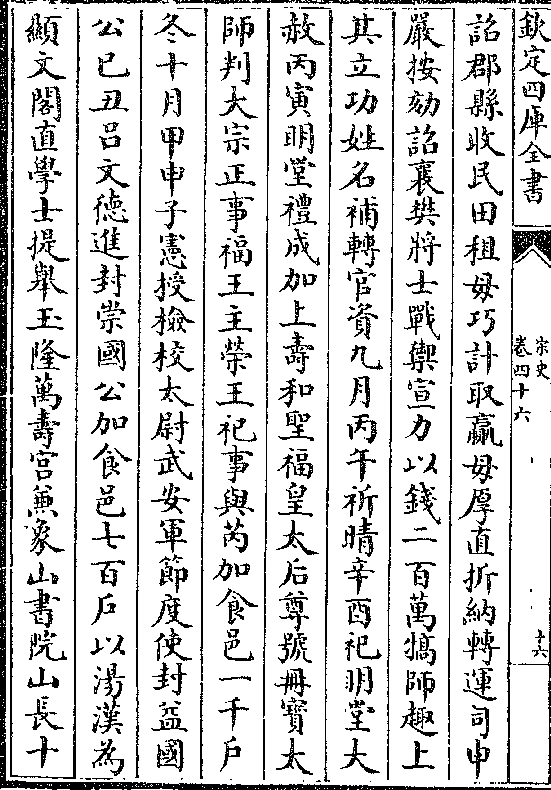 欽定四庫全書
宋史
卷四十六
十六
詔郡縣收民田租毋巧計取贏毋厚直折納轉運司申
嚴按劾詔襄樊將士戰禦宣力以錢二百萬犒師趣上
其立功姓名補轉官資九月丙午祈晴辛酉祀明堂大
赦丙寅明堂禮成加上壽和聖福皇太后尊號冊寶太
師判大宗正事福王主榮王祀事與芮加食邑一千戶
冬十月甲申子憲授檢校太尉武安軍節度使封益國
公己丑呂文德進封崇國公加食邑七百戶以湯漢為
顯文閣直學士提舉玉隆萬壽宮兼象山書院山長十